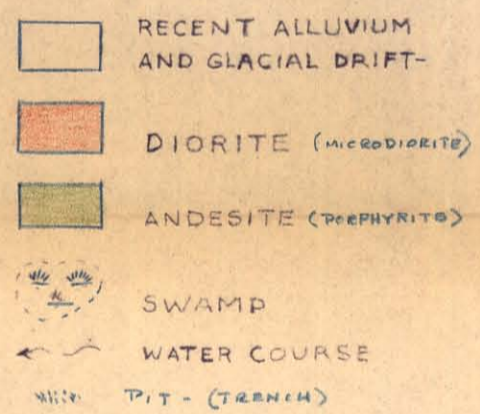 RECENT ALLUVIUM
AND GLACIAL DRIFT-
DIORITE (MICRODIORITE)
ANDESITE (PORPHYRITE)
SWAMP
WATER COURSE
PIT - (TRENCH)